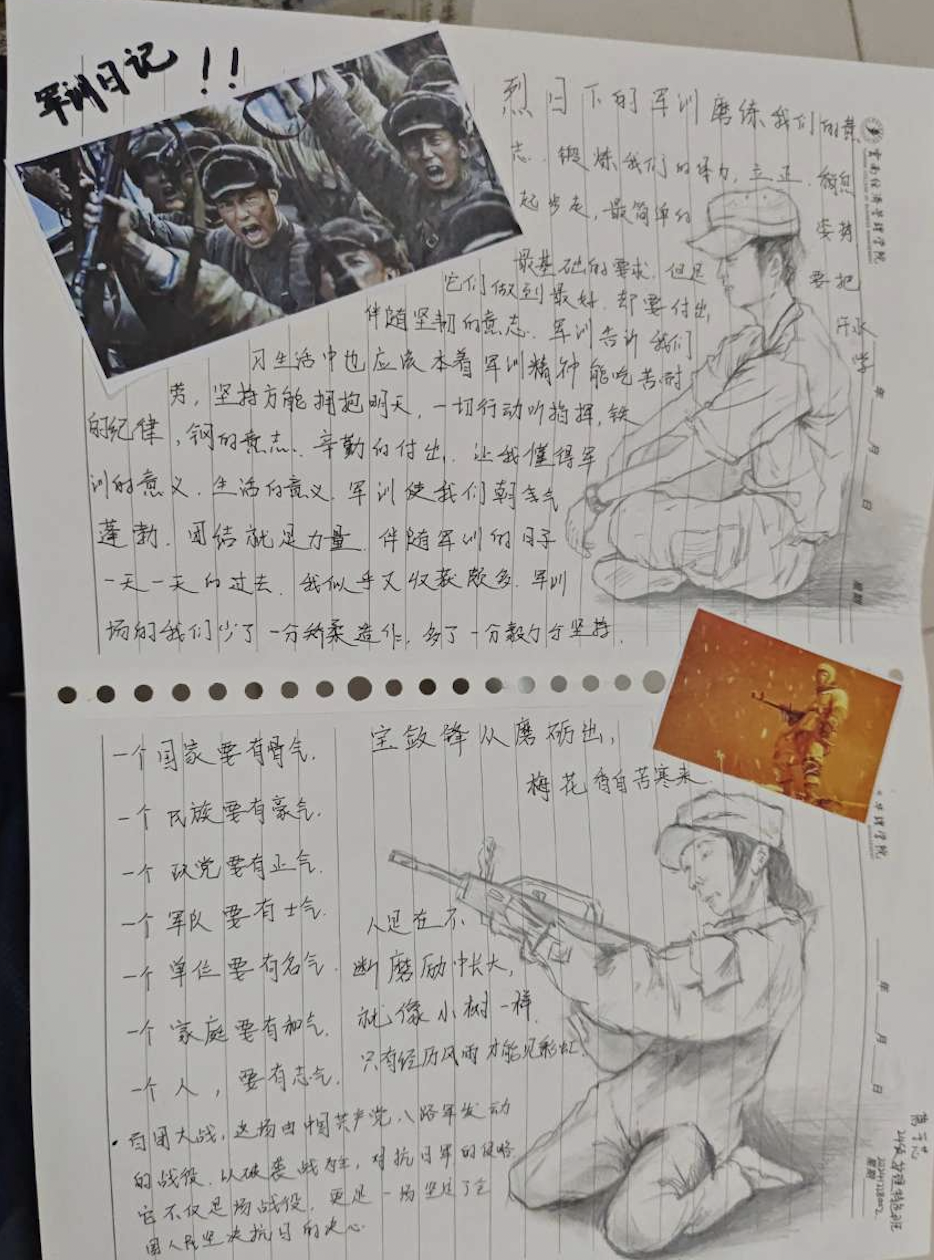 军训日记!!
烈日下的军训磨练我们的意
志.锻炼我们的体力,立正.稍息
起步走,最简单的姿势
最基础的要求.但是要把
它们做到最好.却要付出汗水
伴随坚韧的意志.军训告诉我们学
习生活中也应该本着军训精神能吃苦耐
劳,坚持方能拥抱明天,一切行动听指挥,铁
的纪律,钢的意志.辛勤的付出.让我懂得军
训的意义.生活的意义.军训使我们朝气
蓬勃.团结就是力量.伴随军训的日子
一天一天的过去.我似乎又收获颇多.军训
场的我们少了一分矫柔造作,多了一分分坚持.
云南经济管理学院
年 月 日
星期
一个国家要有骨气.
一个民族要有豪气.
一个政党要有正气.
一个军队要有士气.
一个单位要有名气.
一个家庭要有和气.
一个人,要有志气.
宝剑锋从磨砺出,
梅花香自苦寒来.
人是在不
断磨励中长大,
就像小树一样.
只有经历风雨才能见彩虹.
百团大战,这场由中国共产党八路军发动
的战役,以破袭战为主,对抗日军的侵略
它不仅是场战役.更是一场坚定了全
国人民坚决抗日的决心.
管理学院
年 月 日
星期